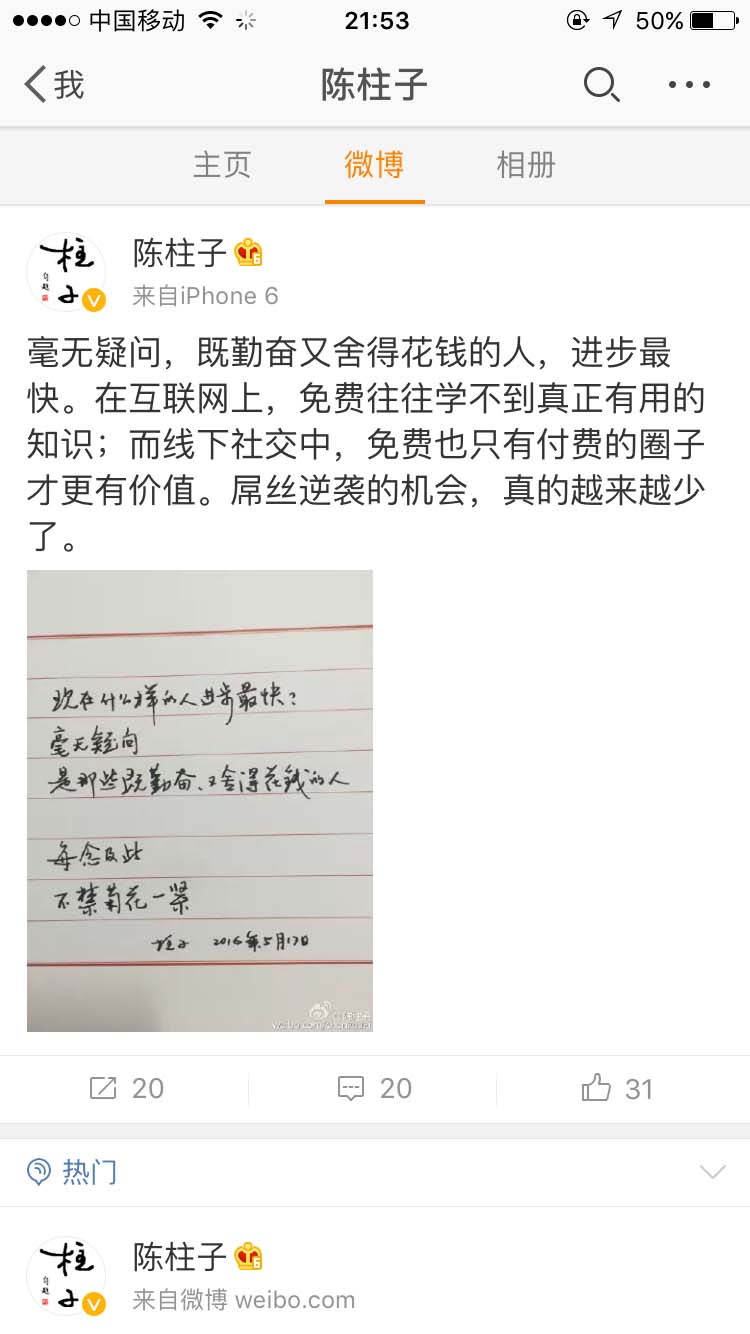 中国移动 21:53 50%
我 陈柱子
主页 微博 相册
柱子
自题
陈柱子
来自iPhone 6
毫无疑问，既勤奋又舍得花钱的人，进步最
快。在互联网上，免费往往学不到真正有用的
知识；而线下社交中，免费也只有付费的圈子
才更有价值。屌丝逆袭的机会，真的越来越少
了。
现在什么样的人进步最快？
毫无疑问
是那些既勤奋、又舍得花钱的人
每念及此
不禁菊花一紧
柱子 2016年5月17日
20 20 31
热门
柱子
自题
陈柱子
来自微博 weibo.com